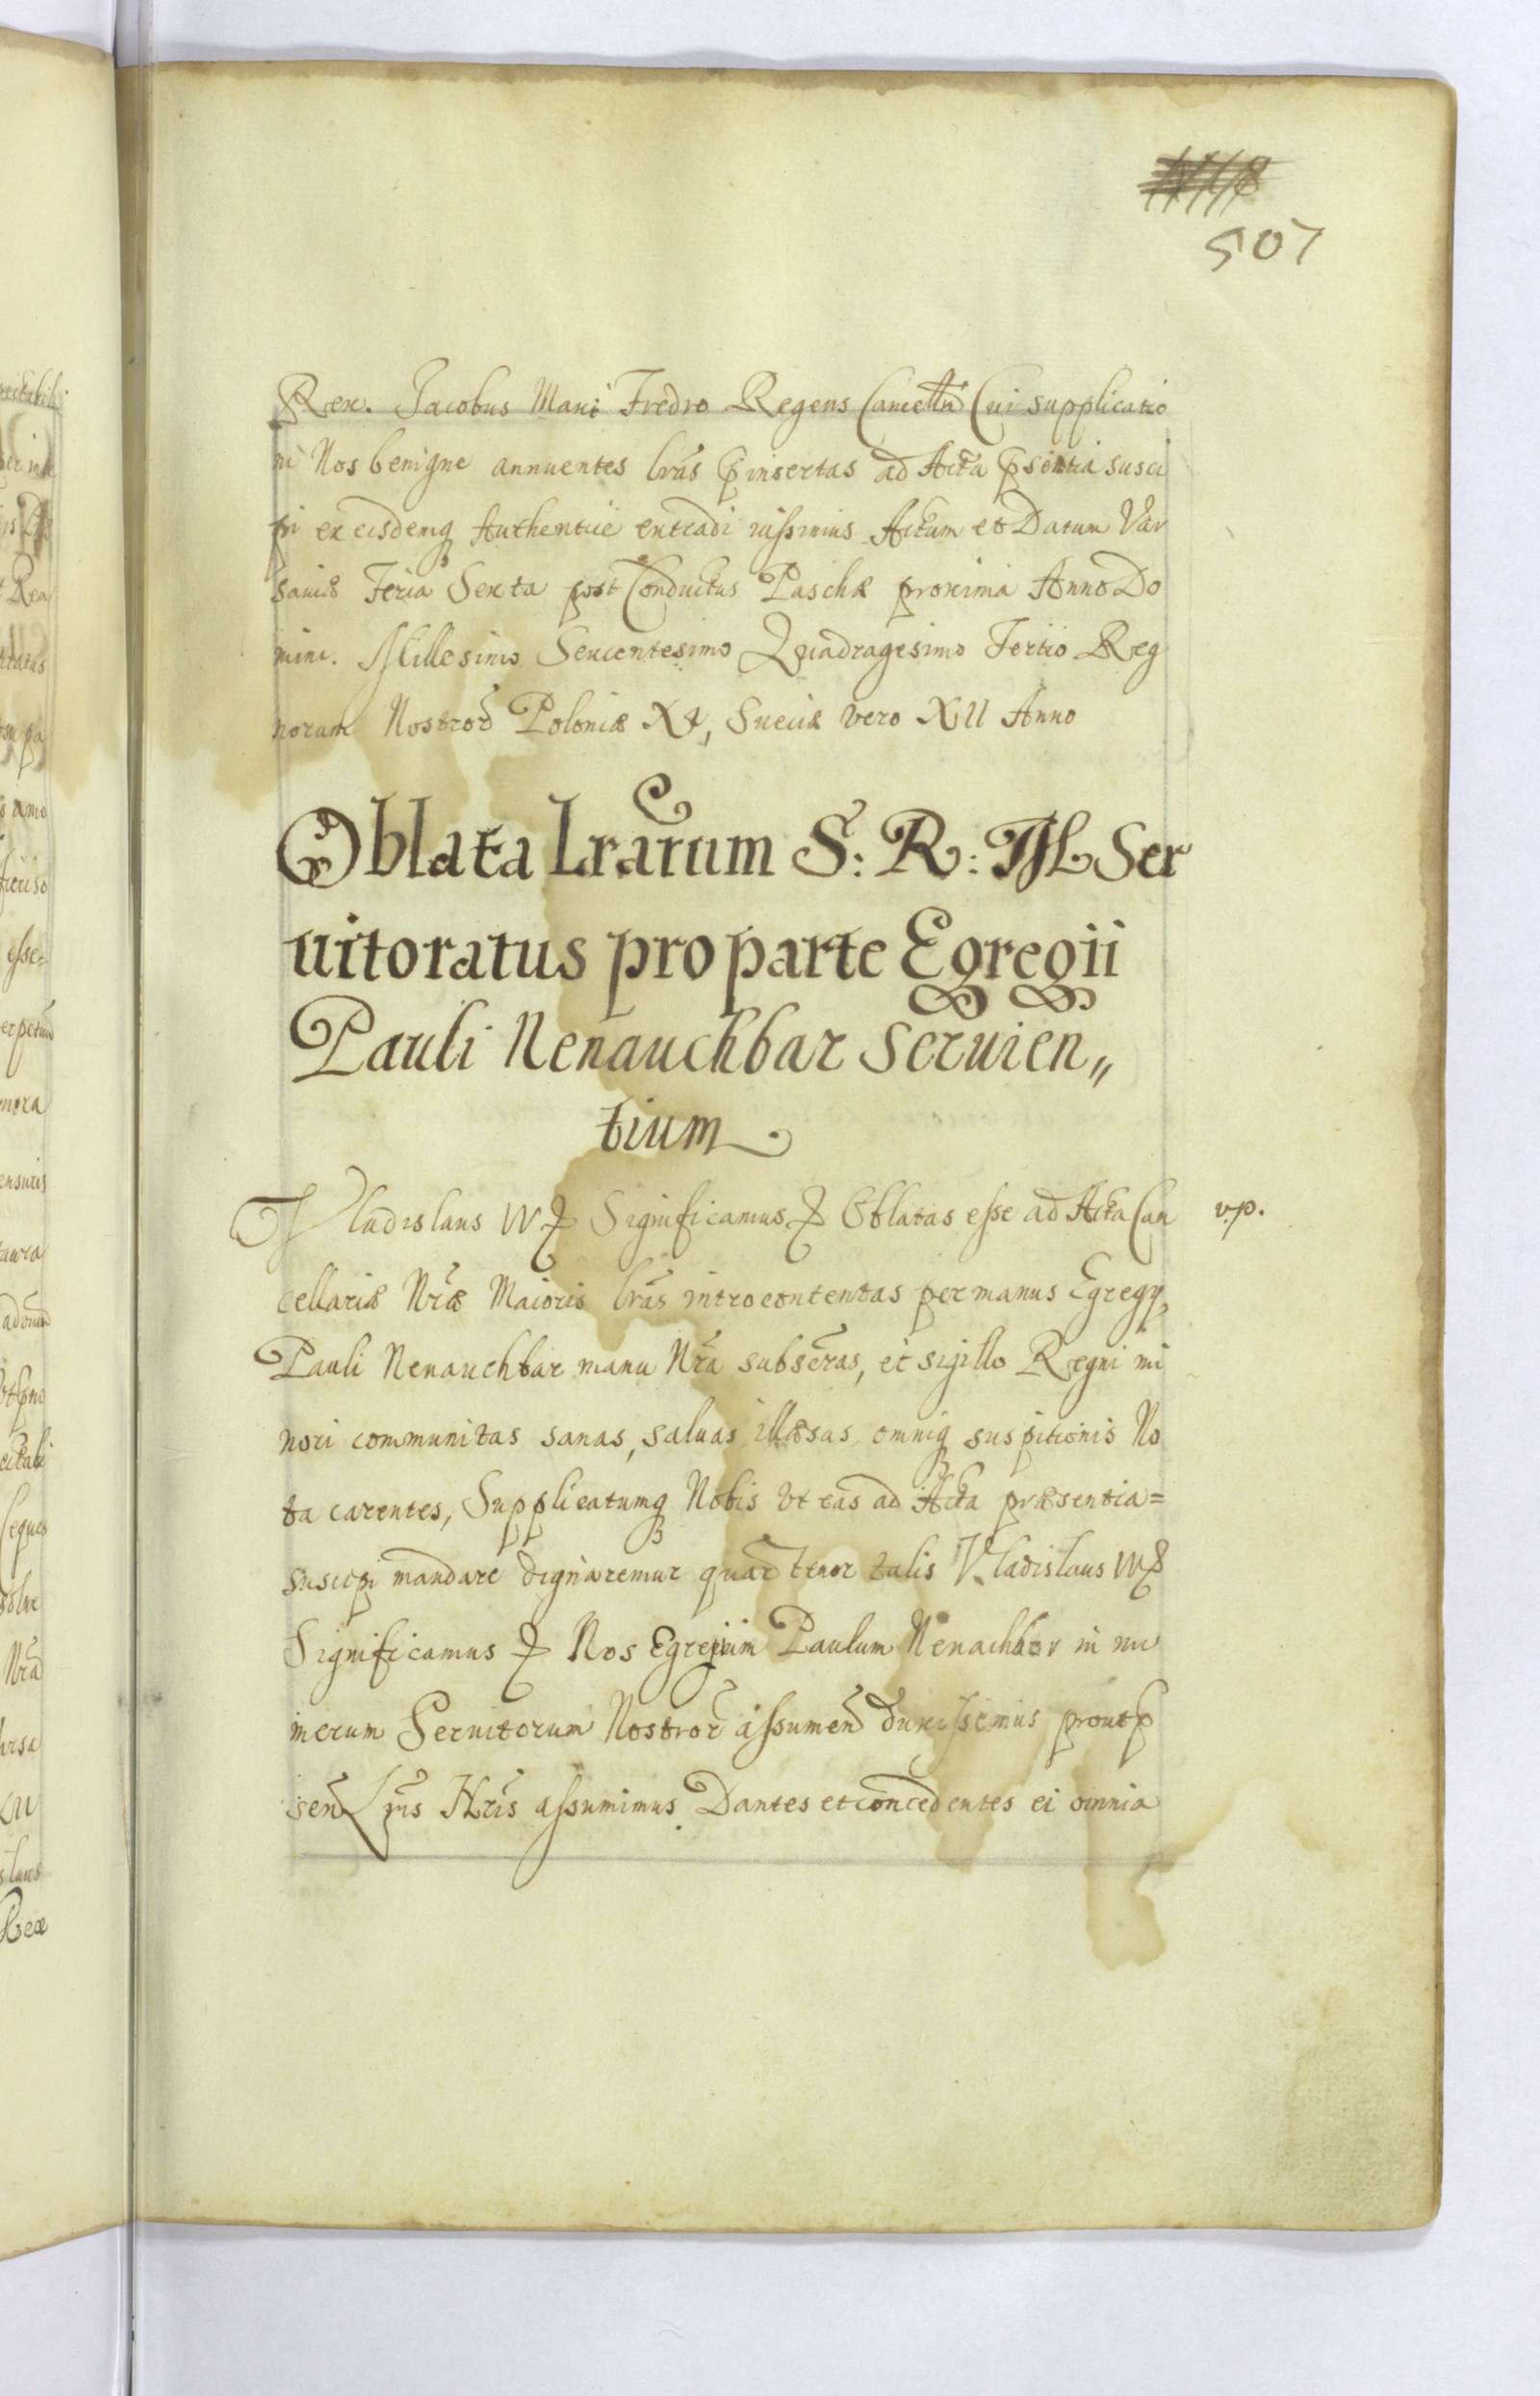 507
Rex. Jacobus Maxi Fredro Regens Cancellri Cui supplicatio
ni Nos benigne annuentes lras pinsertas ad Acta psentia susci
pi ex eisdemq Authentice extradi iussimus Actum et Datum Var
saviæ Feria Sexta post Conductus Paschæ proxima Anno Do
mini. Millesimo Sexcentesimo Quadragesimo Tertio Reg
norum Nostror Poloniæ XI, Sueciæ vero XII Anno
Oblata Lrarum S: R: M Ser
uitoratus pro parte Egregii
Pauli Nenauchbar Seruien„
tium
Vladislaus IV Significamus Oblatas esse ad Acta Can
v.p.
cellariæ Nræ Maioris lras introcontentas per manus Egregy
Pauli Nenauchbar manu Nra subscras, et sigillo Regni mi
nori communitas sanas, saluas illæsas omniq suspitionis No
ta carentes, Supplicatumq Nobis vt eas ad Acta præsentia=
suscipi mandare dignaremur quar tenor talis Vladislaus IV
Significamus Nos Egregium Paulum Nenachbor in nu
merum Seruitorum Nostror assumen duxissemus prout p
sen Lris Nris assumimus. Dantes et concedentes ei omnia